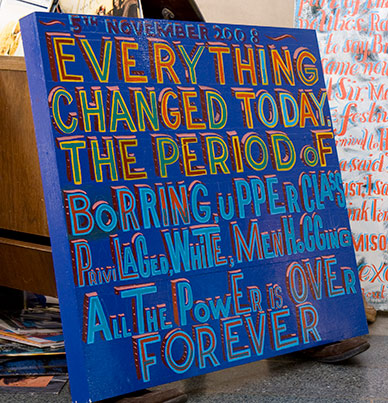 5TH NOVEMBER 2008
EVERYTHING
CHANGED TODAY,
THE PERIOD OF
BORRING, UPPER CLASS
PRIVILAGED, WHITE, MEN HOGGING
ALL THE POWER IS OVER
FOREVER